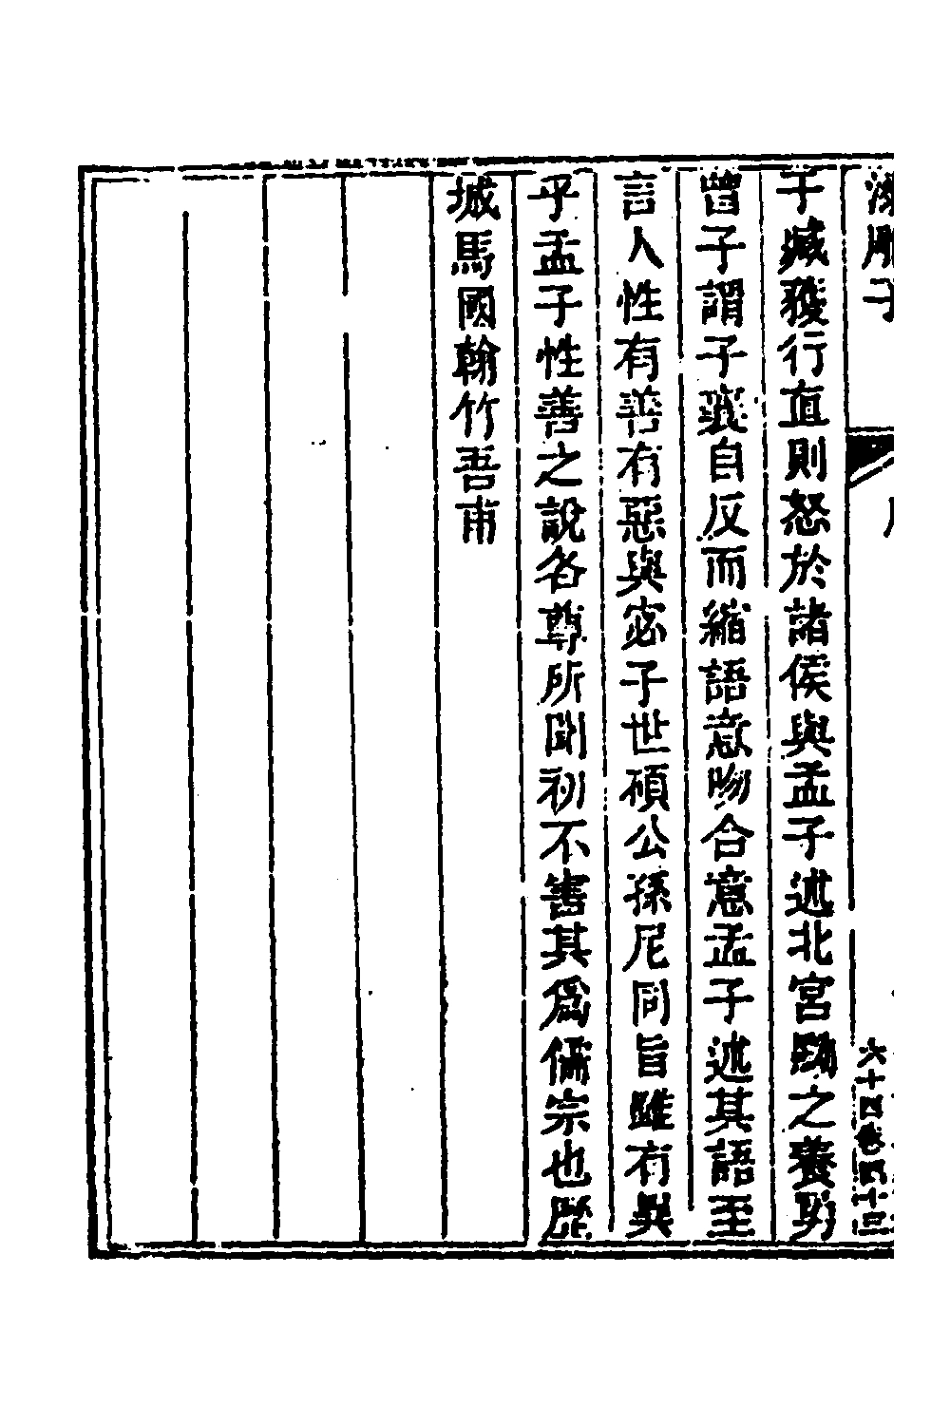 漆雕子
六十四卷四十三
于臧獲行直則怒於諸侯與孟子述北宮黝之養勇
曾子謂子襄自反而縮語意吻合意孟子述其語至
言人性有善有惡與宓子世碩公孫尼同旨雖有異
乎孟子性善之說各尊所聞初不害其為儒宗也歷
城馬國翰竹吾甫